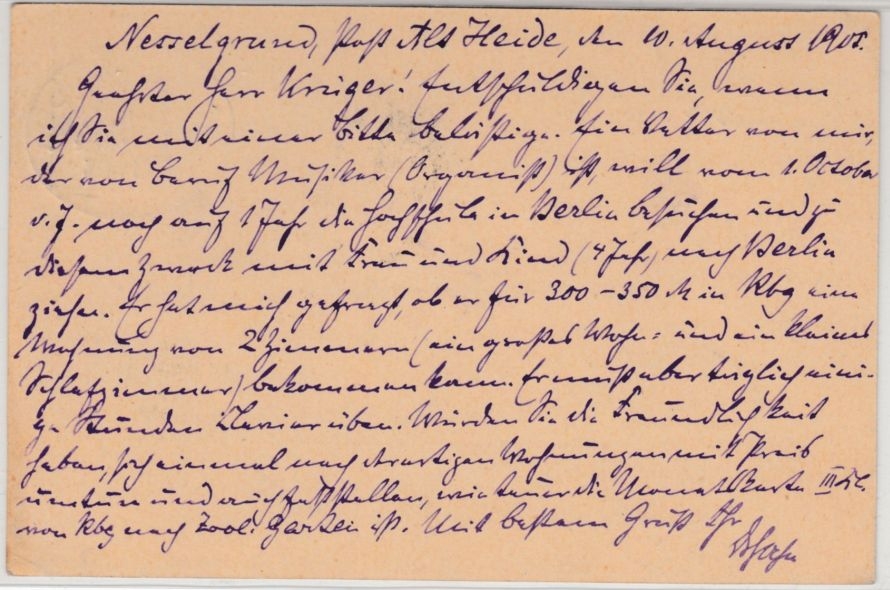 Nesselgrund, Post Alt Heide, den 10. August 1905.
Geehrter Herr Krüger! Entschuldigen Sie, wenn
ich Sie mit einer Bitte belästige. Ein Vetter von mir,
der von Beruf Musiker (Organist) ist, will vom 1. October
d. J. noch auf 1 Jahr die Hochschule in Berlin besuchen und zu
diesem Zweck mit Frau und Kind (4 Jahr) nach Berlin
ziehen. Er hat mich gefragt, ob er für 300-350 M in Rbg eine
Wohnung von 2 Zimmern (ein großes Wohn= und ein kleines
Schlafzimmer) bekommen kann. Er muß aber täglich eini-
ge Stunden Klavier üben. Würden Sie die Freundlichkeit
haben, sich einmal nach derartigen Wohnungen mit Preis
umtun und auch feststellen, wie teuer die Monatskarte III. Kl.
von Rbg nach Zool. Garten ist. Mit bestem Gruß Ihr